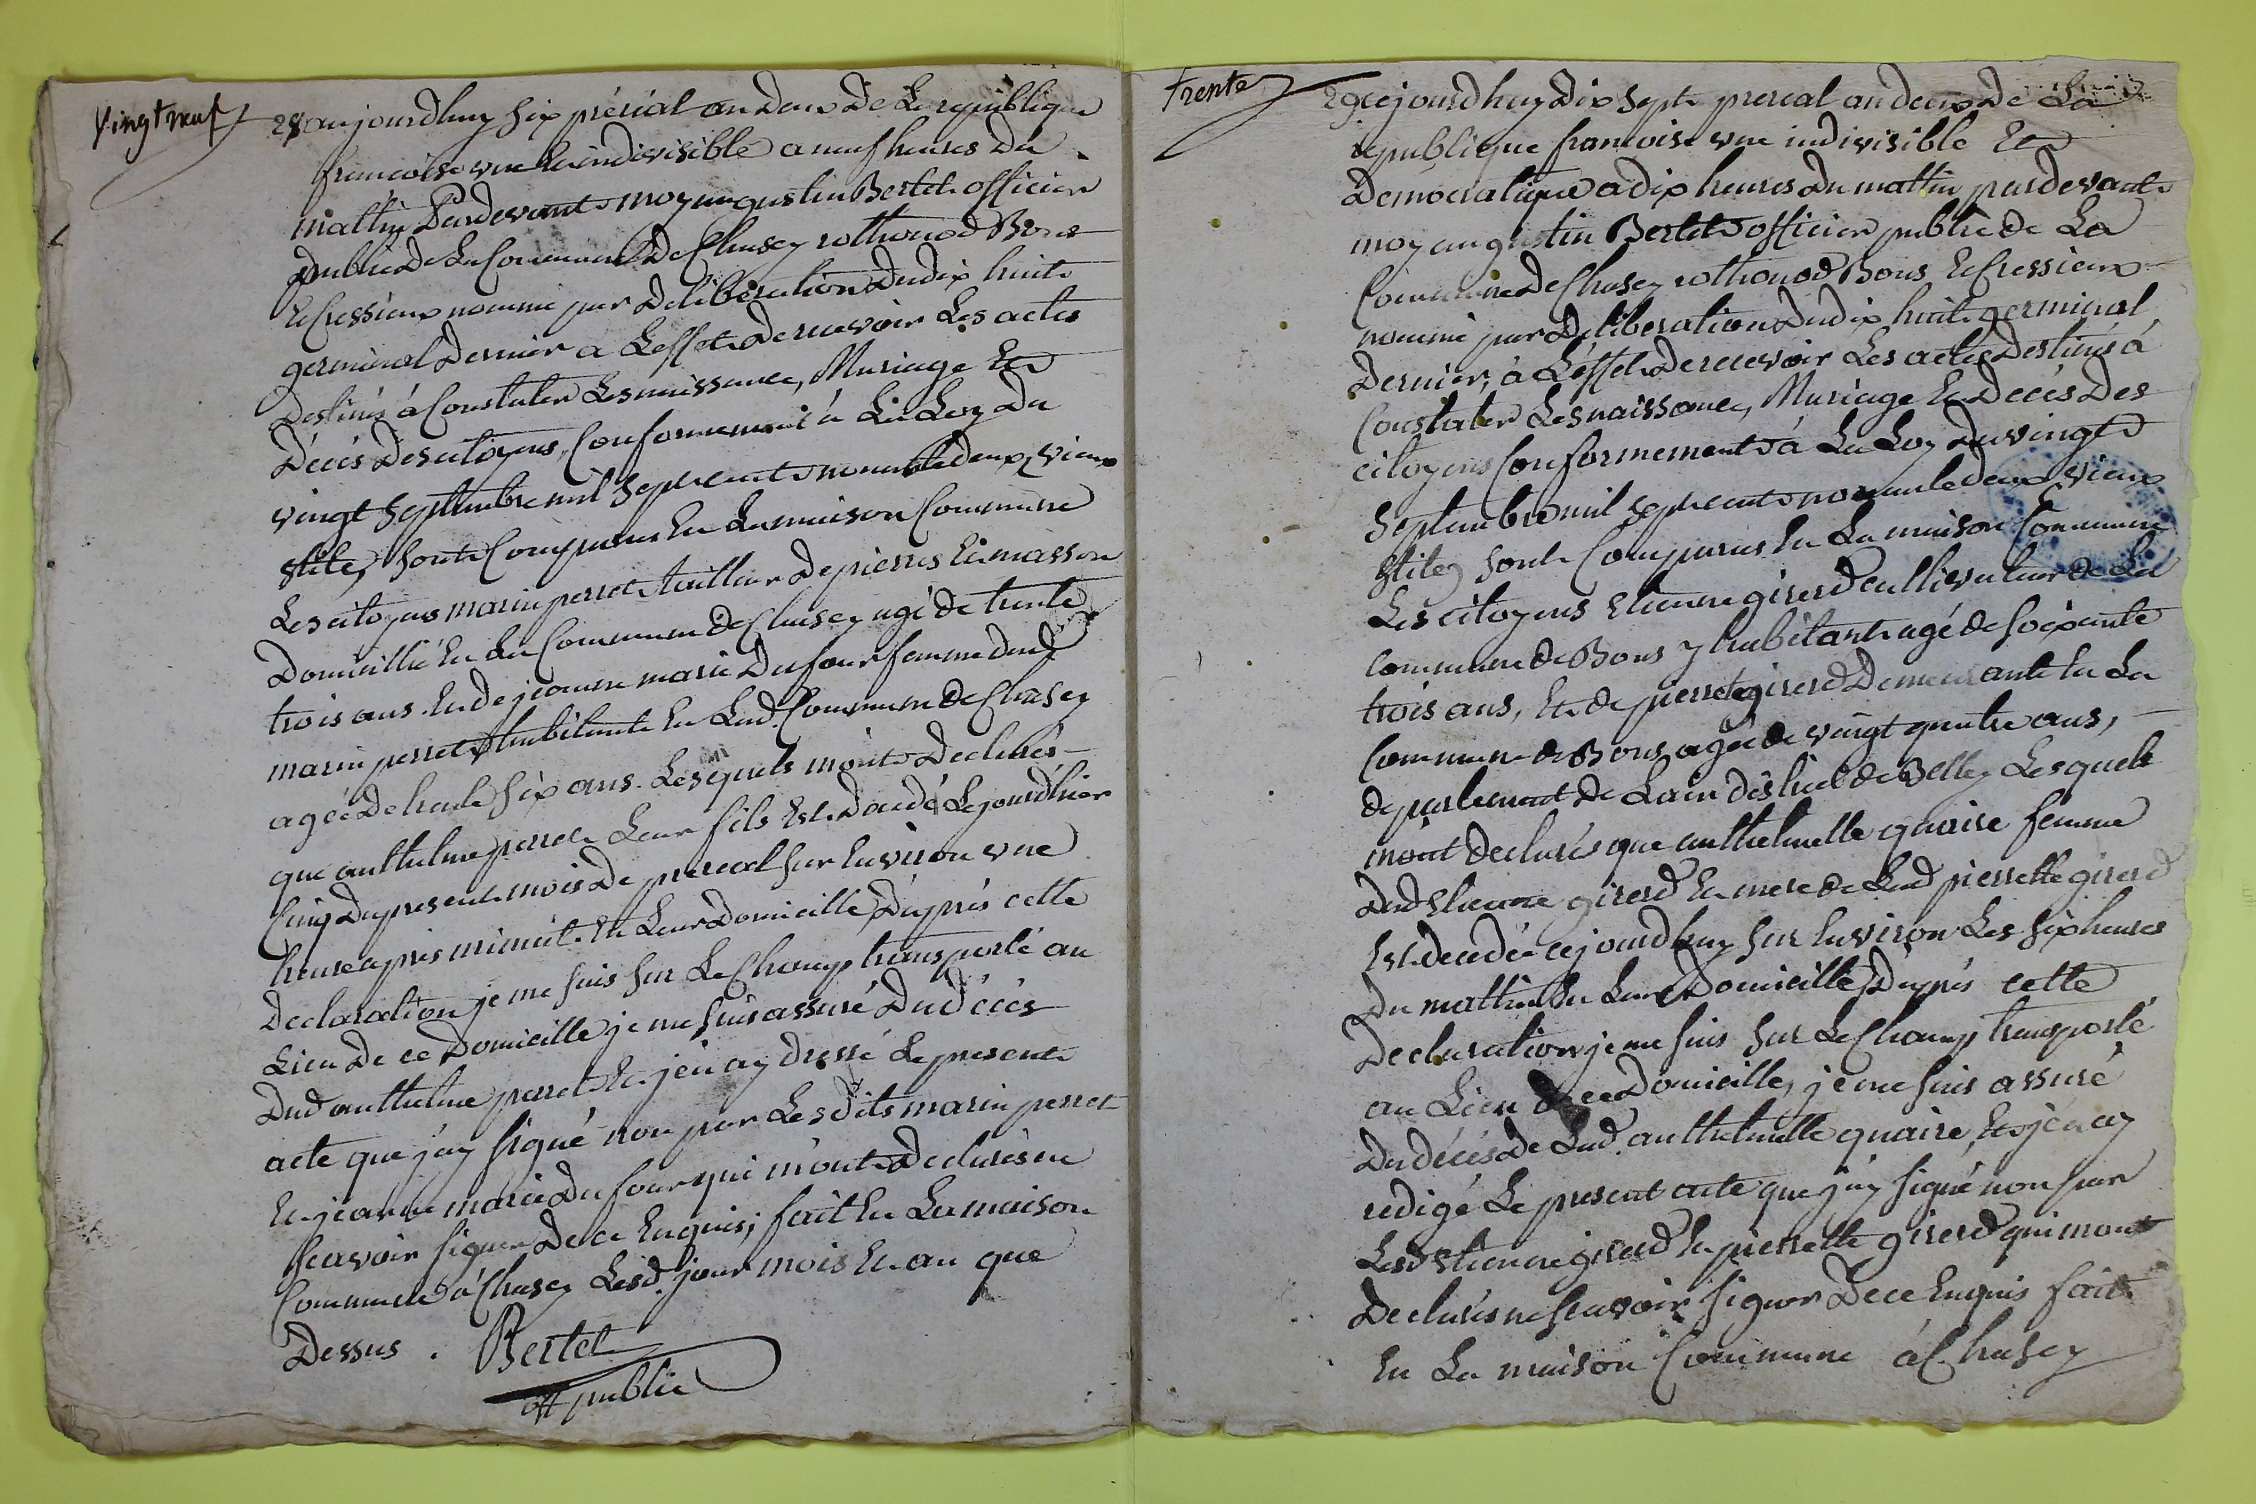 Vingt neuf
28 aujourdhuy six prérial an deux de La republique
francoise une et indivisible a neuf heures du
mattin Pardevant moy augustin Bertet officier
public de La Commune De Chasey rothonod Bons
et Cressieux nommé par Deliberation du dix huit
germinal Dernier a Leffet de recevoir Les actes
destinés à Constater Les naissance, Mariage et
Décés Des citoyens, Conformement à La Loy du
vingt Septembre mil sept cent nonante deux, vieux
stile, sont Comparus En La maison Commune
Les citoyens marin perret tailleur de pierres Et masson
Domicillié En La Commune de Chasey agé de trente
trois ans. et de jeanne marie Dufour femme dud
marin perret habitante En Lad. Commune de Chasey
agée de trente six ans. Lesquels m'ont Declarés
que anthelme perret Leur fils Est Décédé Le jourdhier
Cinq du present mois De prereal sur Environ une
heure apres minuit En Leur Domicille, D'aprés cette
Declaration je me suis sur Le Champ transporté au
Lieu de ce Domicille je me suis assuré Du décés
Dud anthelme perret Et j'en ay dressé Le present
acte que j'ay signé non par Les dits marin perret
Et jeanne marie Dufour qui m'ont Declarés ne
scavoir signer De ce Enquis; fait En La maison
Commune à Chasey Lesd. jour mois Et an que
Dessus . Bertet
off public
trente
29 cejourdhuy Dix sept prereal an deux De La
republique francoise une indivisible Et
Démocratique a dix heures du mattin pardevant
moy augustin Bertet officier public de La
Commune De Chasey rothonod Bons Et Cressieux
nommé par Deliberation du dix huit germinal
Dernier, à L'effet De recevoir Les actes Destinés à
Constater Les naissance, Mariage Et Décés Des
citoyens Conformement à La Loy du vingt
Septembre mil sept cent nonante deux vieux
stile, sont Comparus En La maison Commune
Les citoyens Etienne girerd cultivateur de La
Commune de Bons y habitant agé de soixante
trois ans, Et de pierrette girerd Demeurante En La
Commune de Bons agée de vingt quatre ans,
departement de Lain district de Belley Lesquels
mont declarés que anthelmette quaire femme
Dud Etienne girerd Et mere de Lad pierrette girerd
Est decedée cejourdhuy sur Environ Les six heures
Du mattin En Leur Domicille, D'aprés cette
Declaration je me suis sur Le Champ transporté
au Lieu de ce Domicille, je me suis assuré
Du décés de Lad. anthelmette quaire, Et j'en ay
redigé Le present acte que j'ay signé non par
Lesd Etienne girerd Et pierrette girerd qui mont
Declarés ne scavoir signer De ce Enquis fait
En La maison Commune à Chasey